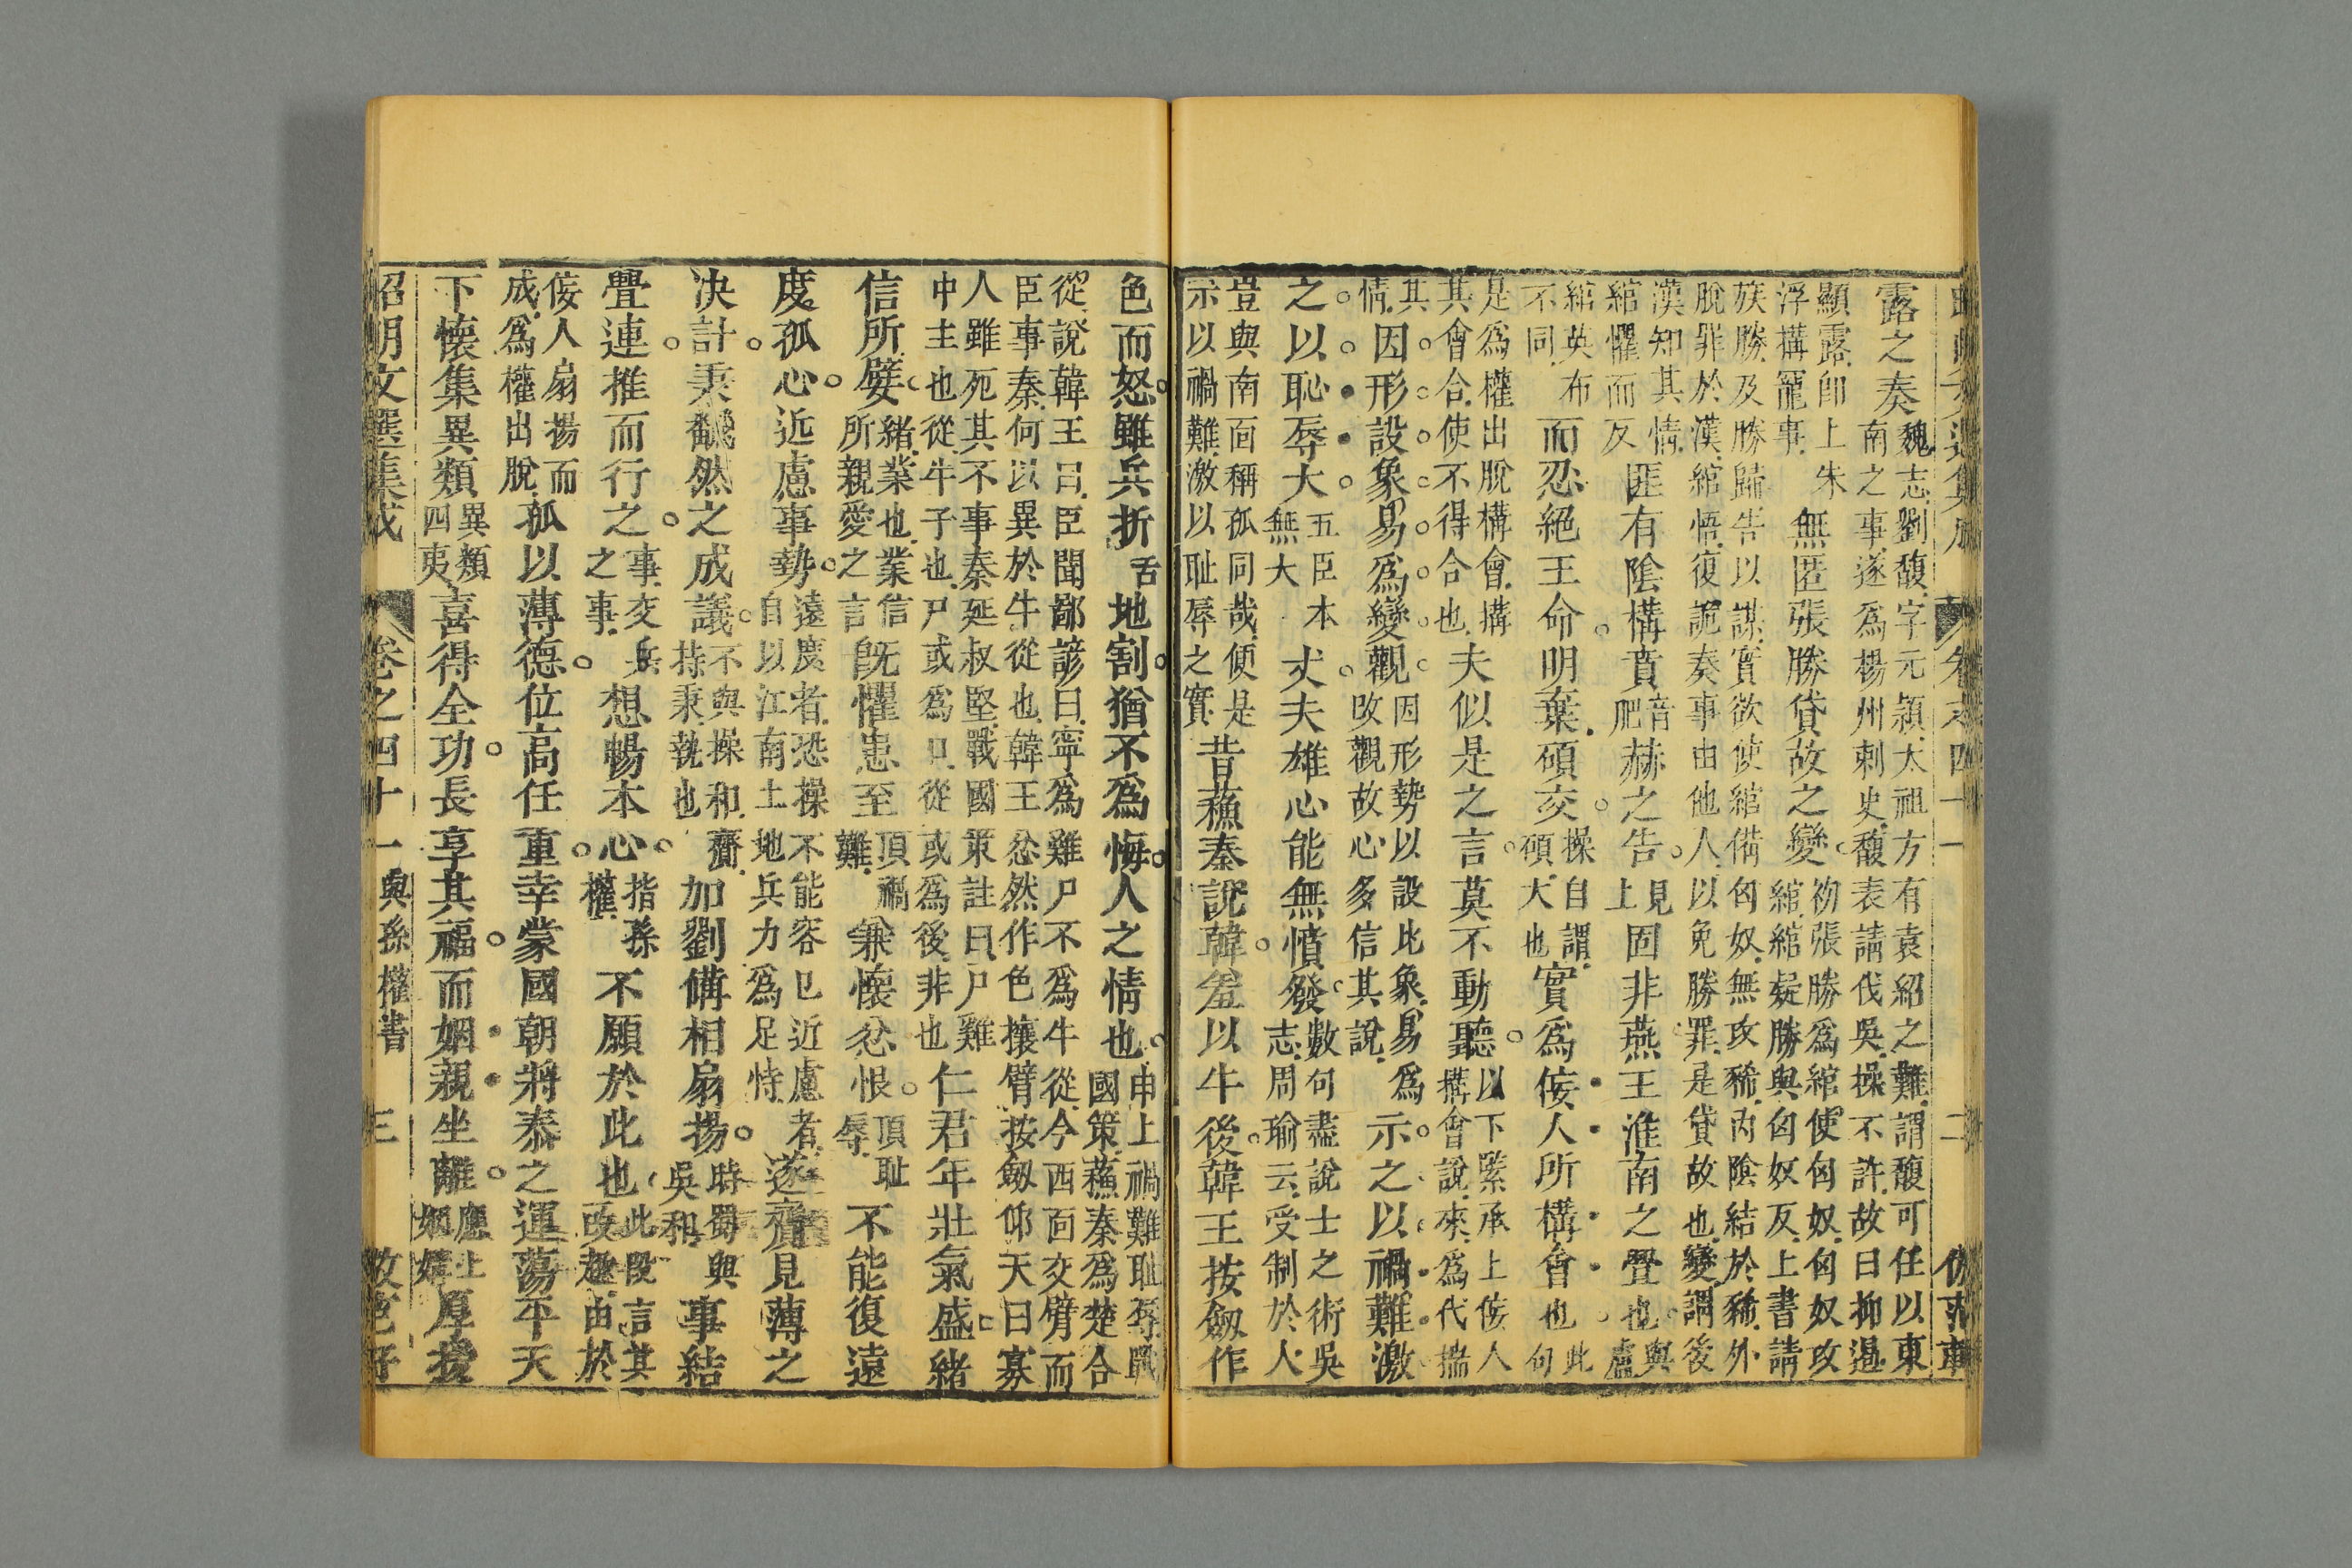 露之奏
魏志劉馥字元穎太祖方有袁紹之難謂馥可任以東
南之事遂爲楊州刺史馥表請伐吳操不許故曰抑遏
顯露卽上朱
浮搆寵事
無匿張勝貸故之變
初張勝爲綰使匈奴匈奴攻
綰綰疑勝與匈奴反上書請
族勝及勝歸告以謀實欲使綰備匈奴無攻豨丙陰結於豨外
脫罪於漢綰悟復詭奏事由他人以免勝罪是貸故也變謂後
漢知其情
綰懼而反
匪有陰構賁
音
肥
赫之告
見
上
固非燕王淮南之亹也
與
盧
綰英布
不同
而忍絕王命明棄碩交
操自謂
碩大也
實爲佞人所構會也
此
句
是爲權出脫構會搆
其會合使不得合也
夫似是之言莫不動聽
以下緊承上佞人
搆會說來爲代揣
其
情
因形設象易爲變觀
因形勢以設此象易爲
改觀故心多信其說
示之以禍難激
之以恥辱大
五臣本
無大
丈夫雄心能無憤發
數句盡說士之術吳
志周瑜云受制於人
豈與南面稱孤同哉便是
示以禍難激以耻辱之實
昔蘇秦說韓羞以牛後韓王按劔作
色而怒雖兵折
舌
地割猶不爲悔人之情也
申上禍難耻辱
國策蘇秦爲楚合
從說韓王曰臣聞鄙諺曰寧爲雞尸不爲牛從今西面交臂而
臣事秦何以異於牛從也韓王忿然作色攘臂按劔仰天曰寡
人雖死其不事秦延叔堅戰國策註曰尸雞
中主也從牛子也尸或爲口從或爲後非也
仁君年壯氣盛緒
信所嬖
緒業也業信
所親愛之言
旣懼患至
頂禍
難
兼懷忿恨
頂耻
辱
不能復遠
度孤心近慮事勢
遠度者恐操不能容已近慮者
自以江南土地兵力爲足恃
遂齎見薄之
决計秉翻然之成議
不與操和
持秉執也
齎
加劉備相扇揚
時蜀與
吳和
事結
亹連推而行之
事交兵
之事
想暢本心
指孫
權
不願於此也
此段言其
改趣由於
佞人扇揚而
成爲權出脫
孤以薄德位高任重幸蒙國朝將泰之運蕩平天
下懷集異類
異類
四夷
喜得全功長享其福而姻親坐離
應上
姻媾
厚援
昭明文選集成 卷之四十一 與孫權書 三